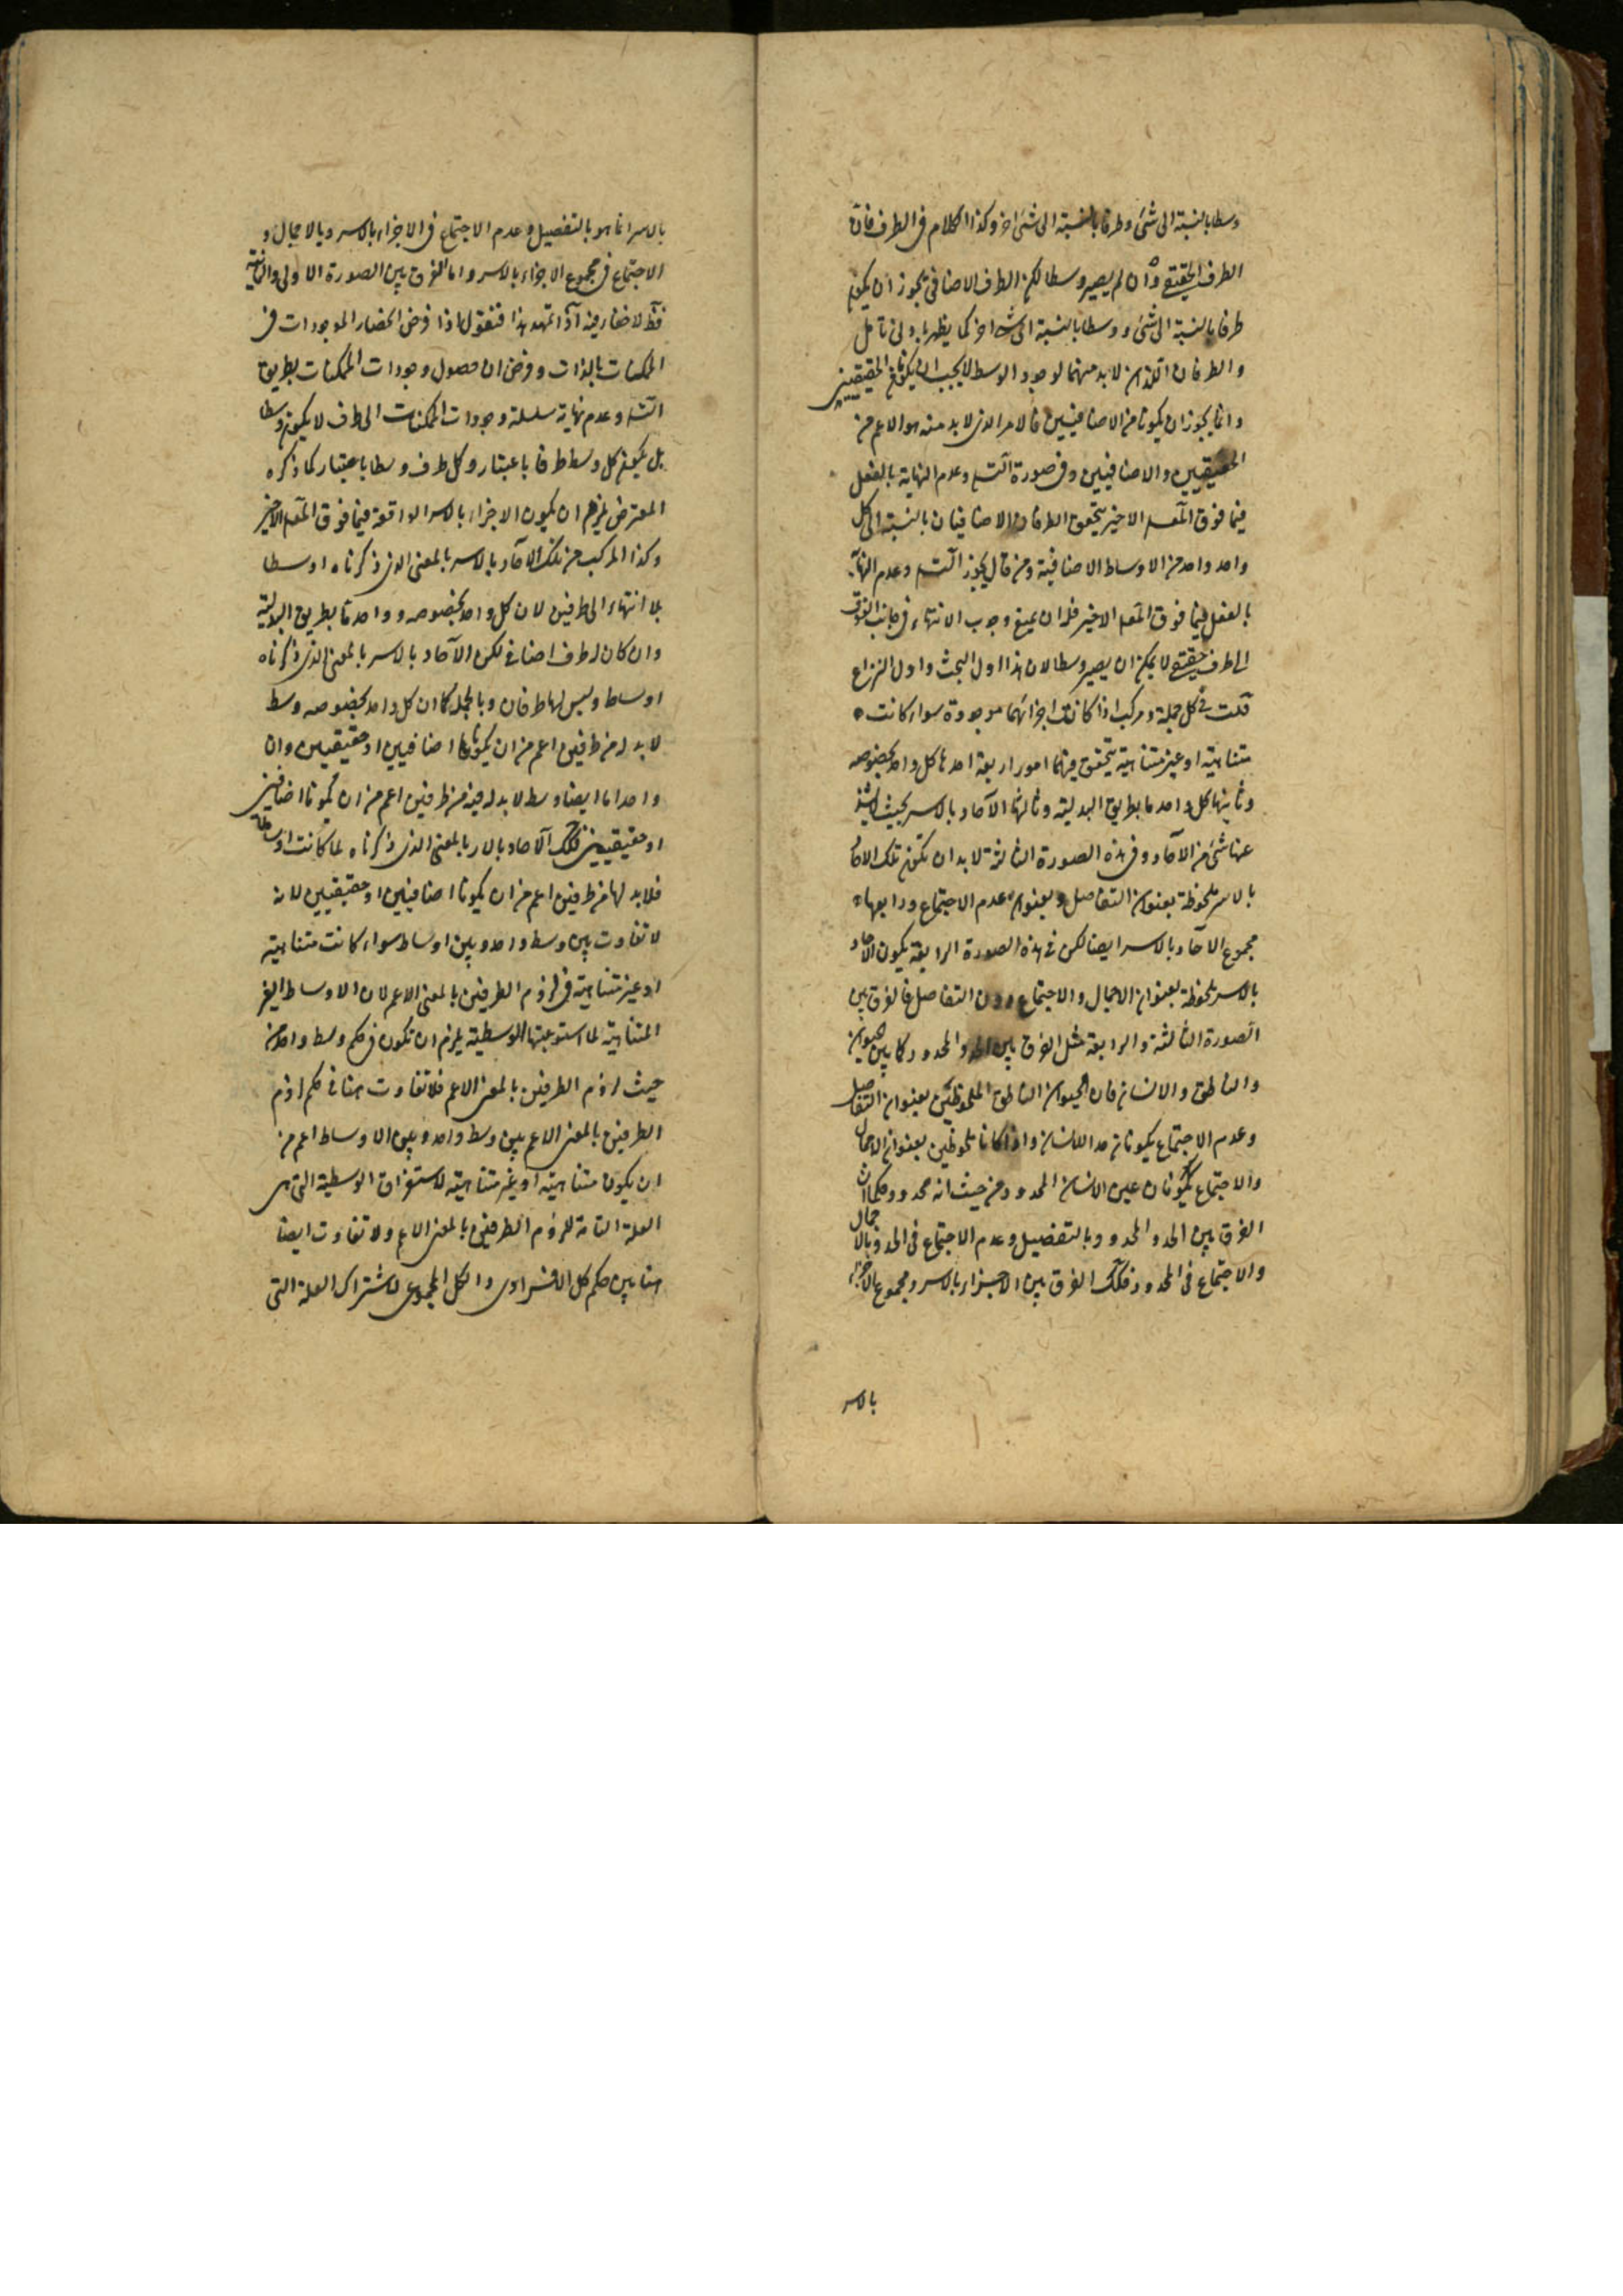 وسطا بالنسبة الى شئ وطرفا بالنسبة الى شئ اخر وكذا الكلام فى الطرف فان
الطرف الحقيقى وان لم يصير وسطا لكن الطرف الاضافى يجوز ان يكون
طرفا بالنسبة الى شئ ووسطا بالنسبة الى شئ اخر كما يظهر بادنى تامل
والطرفان اللذان لابد منهما لوجود الوسط لا يجب ان يكونا من الحقيقيين
وانما يجوز ان يكونا من الاضافيين فالامر الذى لابد منه هو الاعم من
الحقيقيين والاضافيين وفى صورة التسـ وعدم النهاية بالفعل
فيما فوق المعلـ الاخير يتحقق الطرفان الاضافيان بالنسبة الى كل
واحد واحد من الاوساط الاضافية ومن قال يجوز التسـ وعدم النهاية
بالفعل فيما فوق المعلـ الاخير فله ان يمنع وجوب الانتهاء فى جانب الفوق
الى طرف حقيقى لا يمكن ان يصير وسطا لان هذا اول البحث واول النزاع
قلت فى كل جملة ومركب اذا كانت اجزائهما موجودة سواء كانت
متناهية او غير متناهية يتحقق فيهما امور اربعة احدها كل واحد بخصوصه
وثانيها كل واحد ما بطريق البدلية وثالثها الآحاد بالاسر بحيث لا يشذ
عنها شئ من الآحاد وفى هذه الصورة الثالثة لابد ان تكون تلك الآحاد
بالاسر ملحوظة بعنوان التفاصل وبعنوان عدم الاجتماع ورابعها
مجموع الآحاد بالاسر ايضا لكن فى هذه الصورة الرابعة يكون الآحاد
بالاسر ملحوظة بعنوان الاجمال والاجتماع دون التفاصل فالفرق بين
الصورة الثالثة والرابعة مثل الفرق بين الحد والمحدود كما بين الحيوان
والناطق والانسان فان الحيوان الناطق الملحوظين بعنوان التفاصل
وعدم الاجتماع يكونان حد الانسان واذا كانا ملحوظين بعنوان الاجمال
والاجتماع يكونان عين الانسان المحدود من حيث انه محدود وكما ان
الفرق بين الحد والمحدود وبالتفصيل وعدم الاجتماع فى الحد وبالاجمال
والاجتماع فى المحدود فكك الفرق بين الاجزاء بالاسر ومجموع الاجزاء
بالاسر
بالاسر انما هو بالتفصيل وعدم الاجتماع فى الاجزاء بالاسر وبالاجمال و
الاجتماع فى مجموع الاجزاء بالاسر واما الفرق بين الصورة الاولى والثانية
فظ لا خفاء فيه اذا تمهد هذا فنقول اذا فرض انحصار الموجودات فى
الممكنات بالذات وفرض ان حصول وجودات الممكنات بطريق
التسـ وعدم نهاية سلسلة وجودات الممكنات الى طرف لا يكون وسطا
بل يكون كل وسط طرفا باعتبار وكل طرف وسطا باعتبار كما ذكره
المعترض يلزم ان يكون الاجزاء بالاسر الواقعة فيما فوق المعلـ الاخير
وكذا المركب من تلك الآحاد بالاسر بالمعنى الذى ذكرناه اوسطا
بلا انتهاء الى طرفين لان كل واحد بخصوصه وواحد ما بطريق البدلية
وان كان له طرف اضافى لكن الآحاد بالاسر بالمعنى الذى ذكرناه
اوساط وليس لها طرفان وبالجملة كما ان كل واحد بخصوصه وسط
لابد له من طرفين اعم من ان يكونا اضافيين او حقيقيين وان
واحدا ما ايضا وسط لابد له فيه من طرفين اعم من ان يكونا اضافيين
او حقيقيين فكك الآحاد بالاسر بالمعنى الذى ذكرناه لما كانت اوساطا
فلابد لها من طرفين اعم من ان يكونا اضافيين او حقيقيين لانه
لا تفاوت بين وسط واحد وبين اوساط سواء كانت متناهية
او غير متناهية فى لزوم الطرفين بالمعنى الاعم لان الاوساط الغير
المتناهية لما استوعبتها الوسطية يلزم ان تكون فى حكم وسط واحد من
حيث لزوم الطرفين بالمعنى الاعم فلا تفاوت هنا فى حكم لزوم
الطرفين بالمعنى الاعم بين وسط واحد وبين الاوساط اعم من
ان يكون متناهية او غير متناهية لاستغراق الوسطية التى هى
العلة التامة للزوم الطرفين بالمعنى الاعم ولا تفاوت ايضا
هنا بين حكم كل الافرادى والكل المجموعى لاشتراك العلة التى